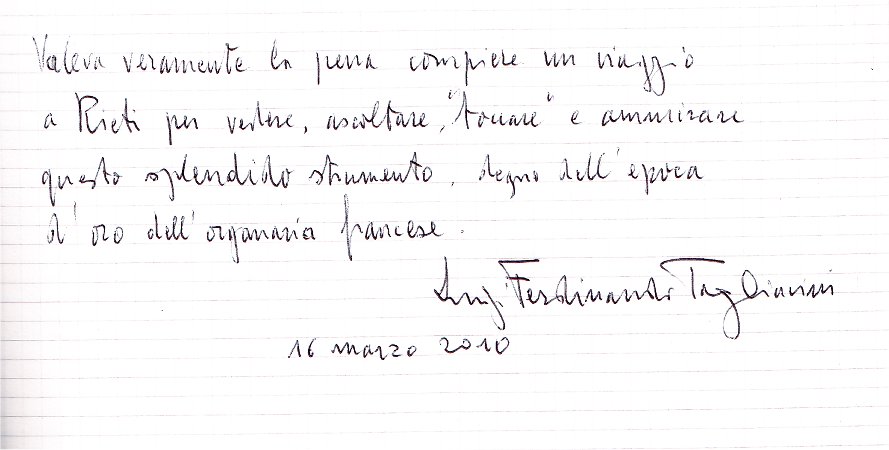 Valeva veramente la pena compiere un viaggio
a Rieti per vedere, ascoltare, "toccare" e ammirare
questo splendido strumento, degno dell'epoca
d'oro dell'organaria francese.
Luigi Ferdinando Tagliavini
16 marzo 2010